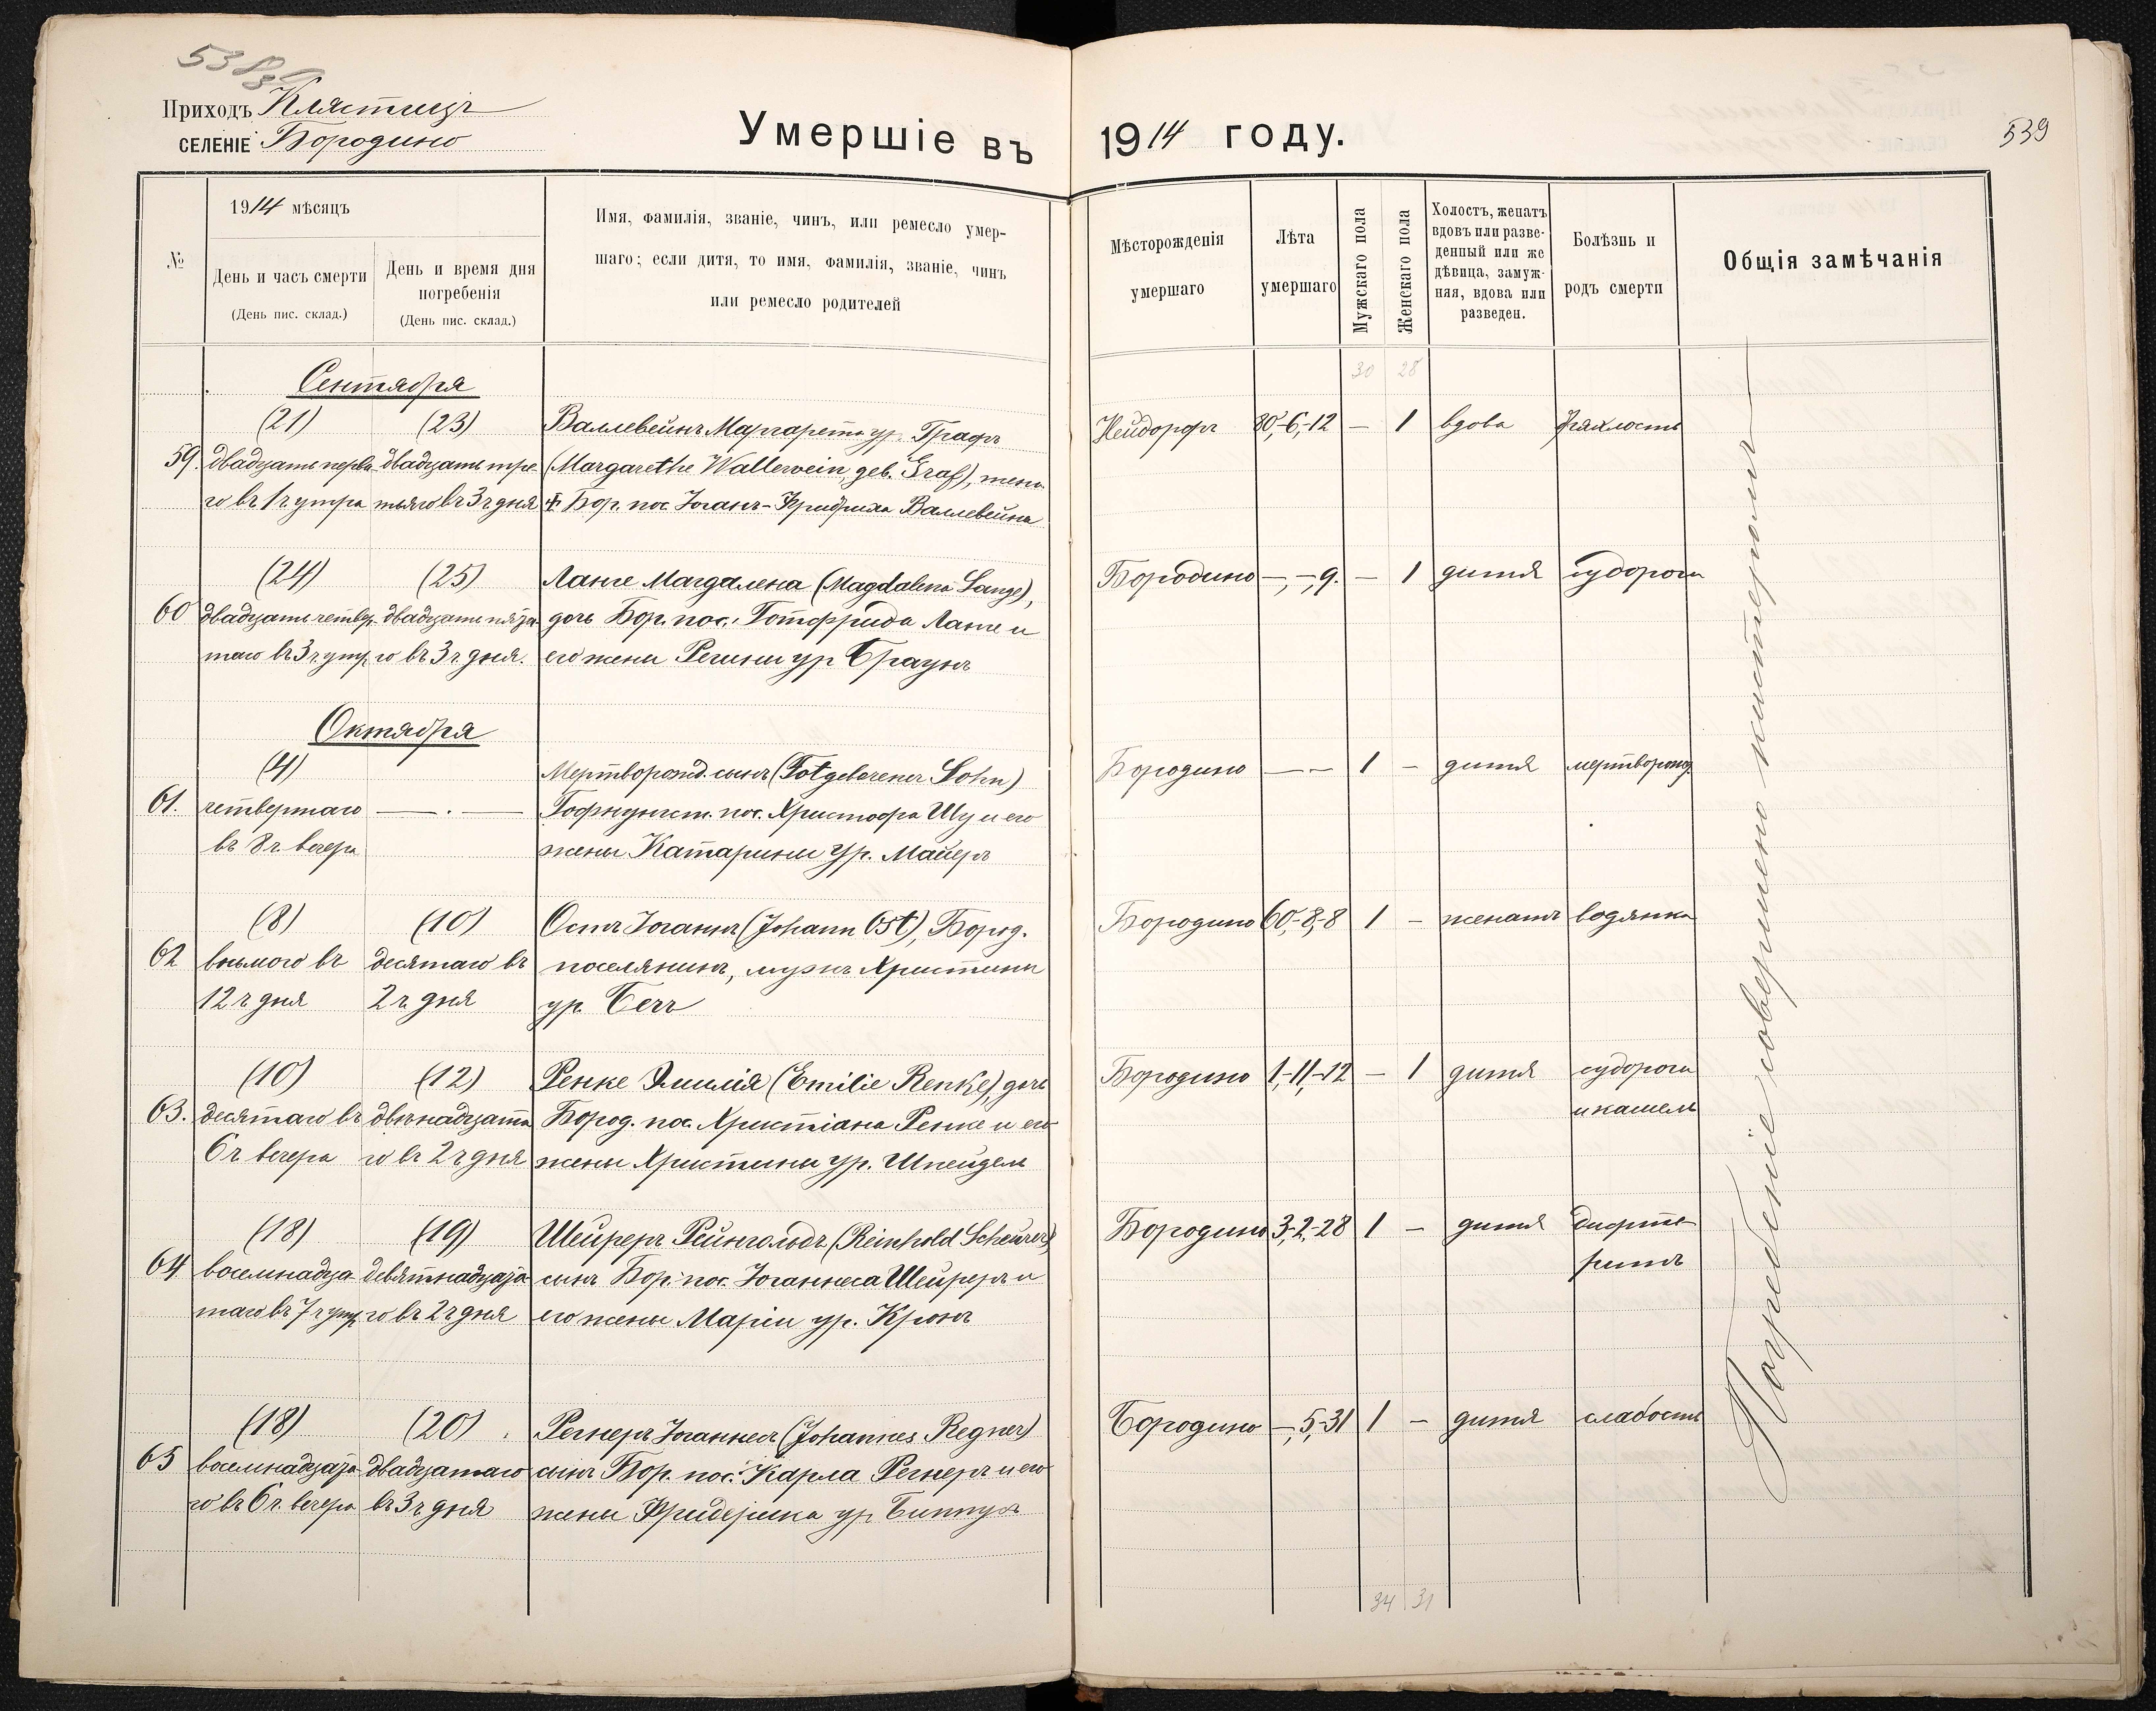 538
Приходъ Клястицъ
селеніе Бородино
Умершіе въ 1914 году.
539
№
1914 мѣсяцъ
День и часъ смерти
(День пис. склад.)
День и время дня
погребенія
(День пис. склад.)
Имя, фамилія, званіе, чинъ, или ремесло умер-
шаго; если дитя, то имя, фамилія, званіе, чинъ
или ремесло родителей
Мѣсторожденія
умершаго
Лѣта
умершаго
Мужскаго пола
Женскаго пола
Холостъ, женатъ
вдовъ или разве-
денный или же
дѣвица, замуж-
няя, вдова или
разведен.
Болѣзнь и
родъ смерти
Общія замѣчанія
30 28
Сентября
(21) (23) Валлевейнъ Маргарета ур. Графъ
59. двадцать перва- двадцать тре- (Margarethe Wallewein, geb. Graf), жена
го въ 1 ч. утра тьяго въ 3 ч дня † Бор. пос. Іоганъ-Фридриха Валлевейна
Нейдорфъ 80,-6,-12 — 1 вдова дряхлость
(24) (25) Ланге Магдалена (Magdalena Lange),
60 двадцать четвер- двадцать пята- дочь Бор. пос. Готфрида Ланге и
таго въ 3 ч. утр. го въ 3 ч. дня. его жены Регины ур Браунъ
Бородино —,—,9. — 1 дитя судороги
Октября
(4) Мертворожд. сынъ (Totgeborener Sohn)
61. четвертаго — . — Гофнунгст. пос. Христофа Шу и его
въ 8 ч. вечера жены Катарины ур. Майеръ
Бородино — — 1 — дитя мертворожд.
(8) (10) Остъ Іоганъ (Johann Ost), Бород.
62 восьмого въ десятаго въ поселянинъ, мужъ Христины
12 ч дня 2 ч. дня ур. Бечъ
Бородино 60,-8,-8 1 — женатъ водянка
(10) (12) Ренке Эмилія (Emilie Renke), дочь
63. десятаго въ двѣнадцата- Бород. пос. Христіана Ренке и его
6 ч вечера го въ 2 ч дня жены Христины ур. Шпейдель
Бородино 1,-11,-12 — 1 дитя судороги
и кашель
(18) (19) Шейреръ Рейнгольдъ (Reinhold Scheurer)
64 восемнадца- девятнадцата- сынъ Бор. пос. Іоганнеса Шейреръ и
таго въ 7 ч утр. го въ 2 ч дня его жены Маріи ур. Кронъ
Бородино 3,-2,-28 1 — дитя дифте-
ритъ
(18) (20) Регнеръ Іоганнесъ (Johannes Regner)
65 восемнадцата- двадцатаго сынъ Бор. пос. Карла Регнеръ и его
го въ 6 ч. вечера въ 3 ч дня жены Фридерика ур. Биппусъ
Бородино —,5,-31 1 — дитя слабость
34 31
Погребеніе совершено кистеромъ